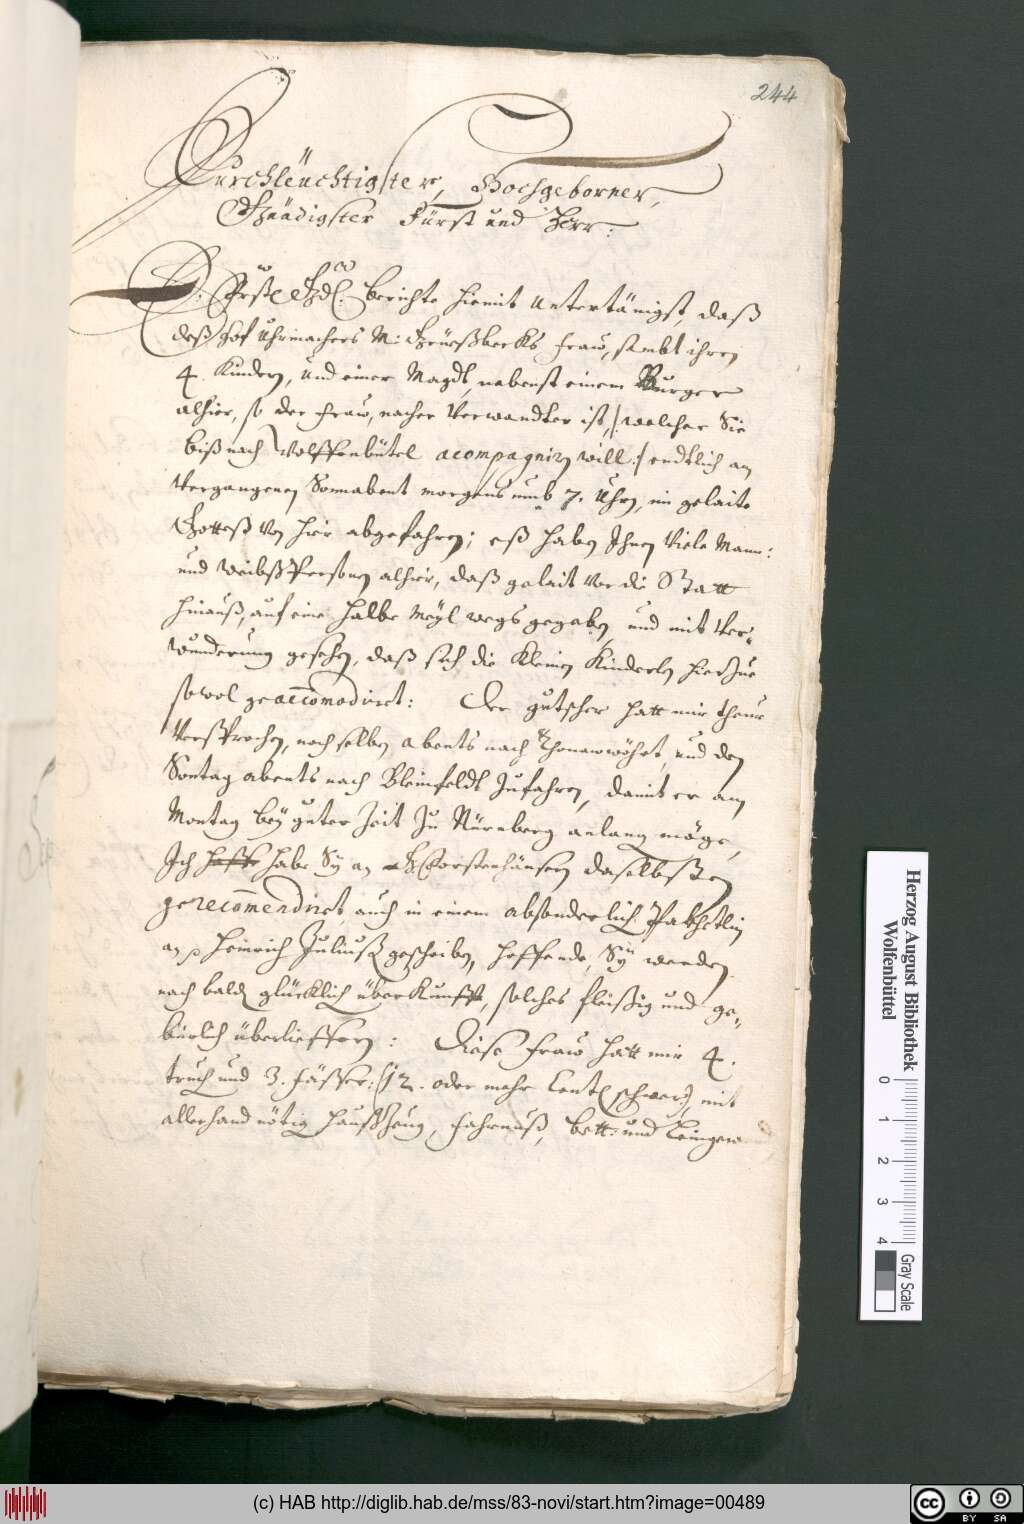 244
Durchleüchtigster, Hochgeborner,
Gnädigster Fürst und Herr:
E. Frstl Gd. berichte hiemit Untertänigst, daß
deß Hof Uhrmachers M: fraw, sambt ihren
4. Kindern, und einer Magdt, nebenst einem Burger
alhier, so der frauw, naher Verwandter ist, /: welcher Sie
biß nach Wolffenbütel acompagniren will :/ endtlich an
Vergangenen Sonnabent morgens umb 7. Uhrn, im gelaite
Gotteß von hier abgefahren; eß haben Ihnen Viele Mann:
und Weibß Personen alhier, daß gelait vor die Statt
hinauß, auf eine halbe Meyl wegs gegeben, und mit Ver-
wunderung gesehen, daß sich die kleinen Kinderln hierzue
so wol geaccomodiret: Der gutscher hatt mir theur
Versprochen, noch selben abents nach Thonawwöhrt, und den
Sontag abents nach Bleinfeldt zufahren, damit er am
Montag bey guter Zeit zu Nürnberg anlangen möge,
Ich hoffe habe Sy an H. Forstenhäusern daselbsten
gerecommendiret, auch in einem absonderlich Pakhetlin
an H Heinrich Juliuß geschriben, hoffende, Sy werden
nach baldt glücklich überkunfft, solches fleißig und ge-
bürlich überlieffern: Diese fraw hatt mir 4.
truch und 3. Fässer: (12. oder mehr Cent schwer), mit
allerhand nötig haußzeug, fahrnuß, bett: und Leingew
Herzog August Bibliothek
Wolfenbüttel
0 1 2 3 4
Gray Scale
(c) HAB http://diglib.hab.de/mss/83-novi/start.htm?image=00489
cc BY SA